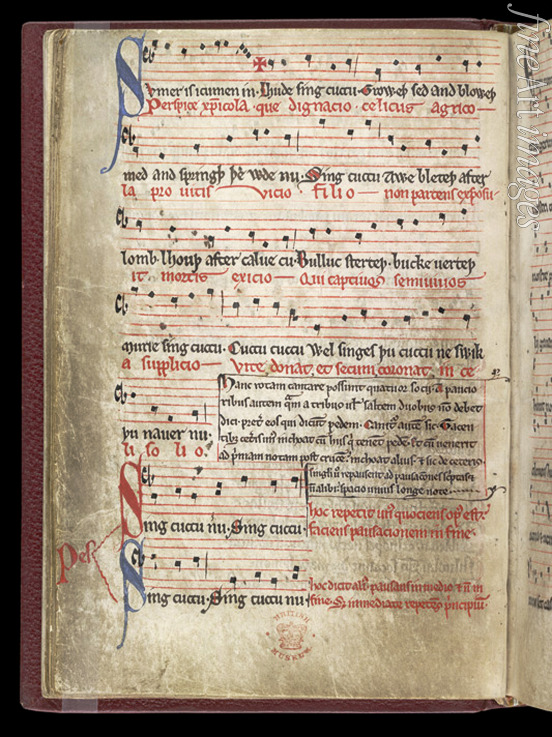 Sumer is icumen in · Lhude sing cuccu · Groweþ sed and bloweþ
Perspice xp̄icola · que dignacio · celicus agrico
med and springþ þe wde nu · Sing cuccu Awe bleteþ after
la pro uitis vicio filio non parcens exposu
lomb · lhouþ after calue cu · Bulluc sterteþ · bucke uerteþ
it mortis exicio Qui captiuos semiuiuos
murie sing cuccu · Cuccu cuccu Wel singes þu cuccu ne swik
a supplicio Vite donat et secum coronat in ce
þu nauer nu ·
li so lio ·
Hanc rotam cantare possunt quatuor socii · A paucio
ribus autem quam a tribus uel saltem duobus non debet
dici · preter eos qui dicunt pedem · Canitur autem sic · Tacen
tibus ceteris unus inchoat cum hiis qui tenent pedem · Et cum uenerit
ad primam notam post crucem · inchoat alius · et sic de ceteris ·
singuli uero repausent ad pausaciones scriptas et
non alibi · spacio unius longe note
Pes
Sing cuccu nu · Sing cuccu ·
hoc repetit unus quociens opus est ·
faciens pausacionem in fine ·
Sing cuccu · Sing cuccu nu
hoc dicit alius pausans in medio et non in
fine · Set immediate repetens principium
BRITISH MUSEUM
fine art images